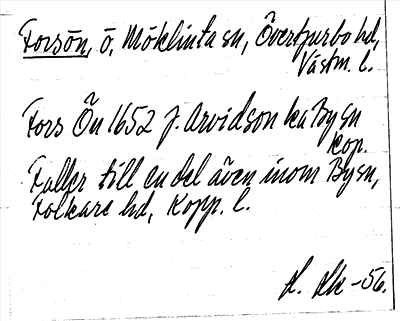 Forsön, ö, Möklinta sn, Övertjurbo hd,
Västm. l.
Fors Ön 1652 J. Arvidson ka By sn
kop.
Faller till en del även inom By sn,
Folkare hd, Kopp. l.
-56.